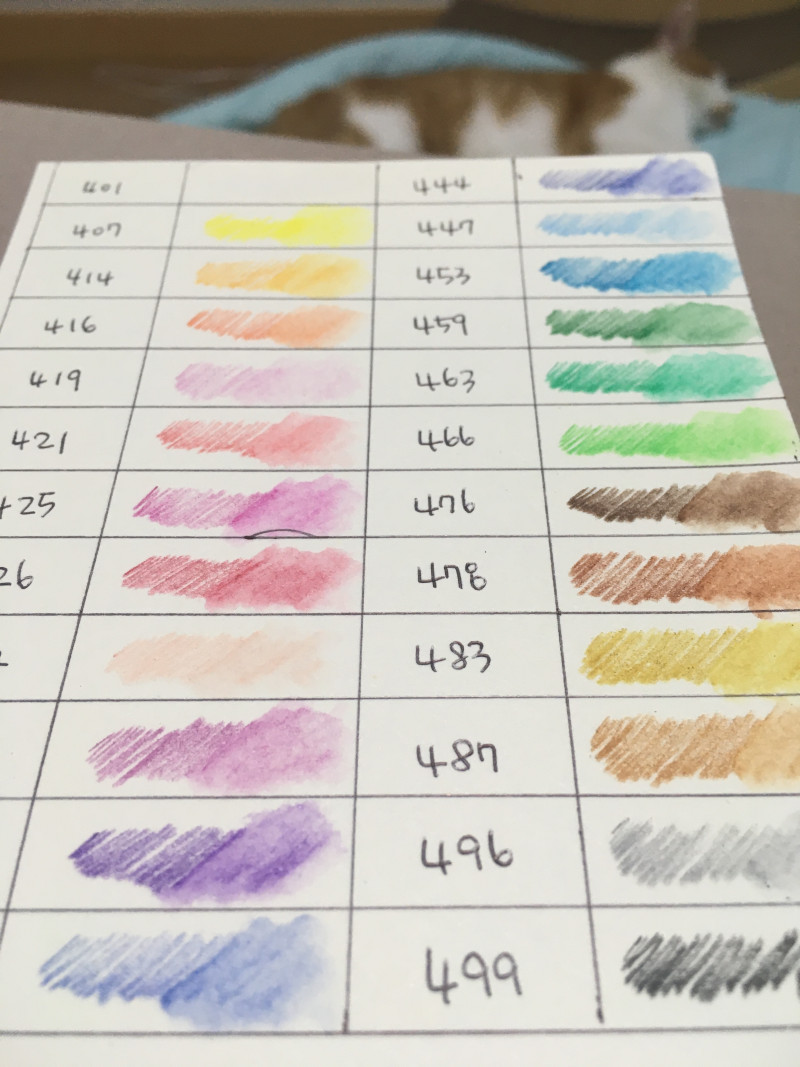 401 444
407 447
414 453
416 459
419 463
421 466
425 476
26 478
483
487
496
499